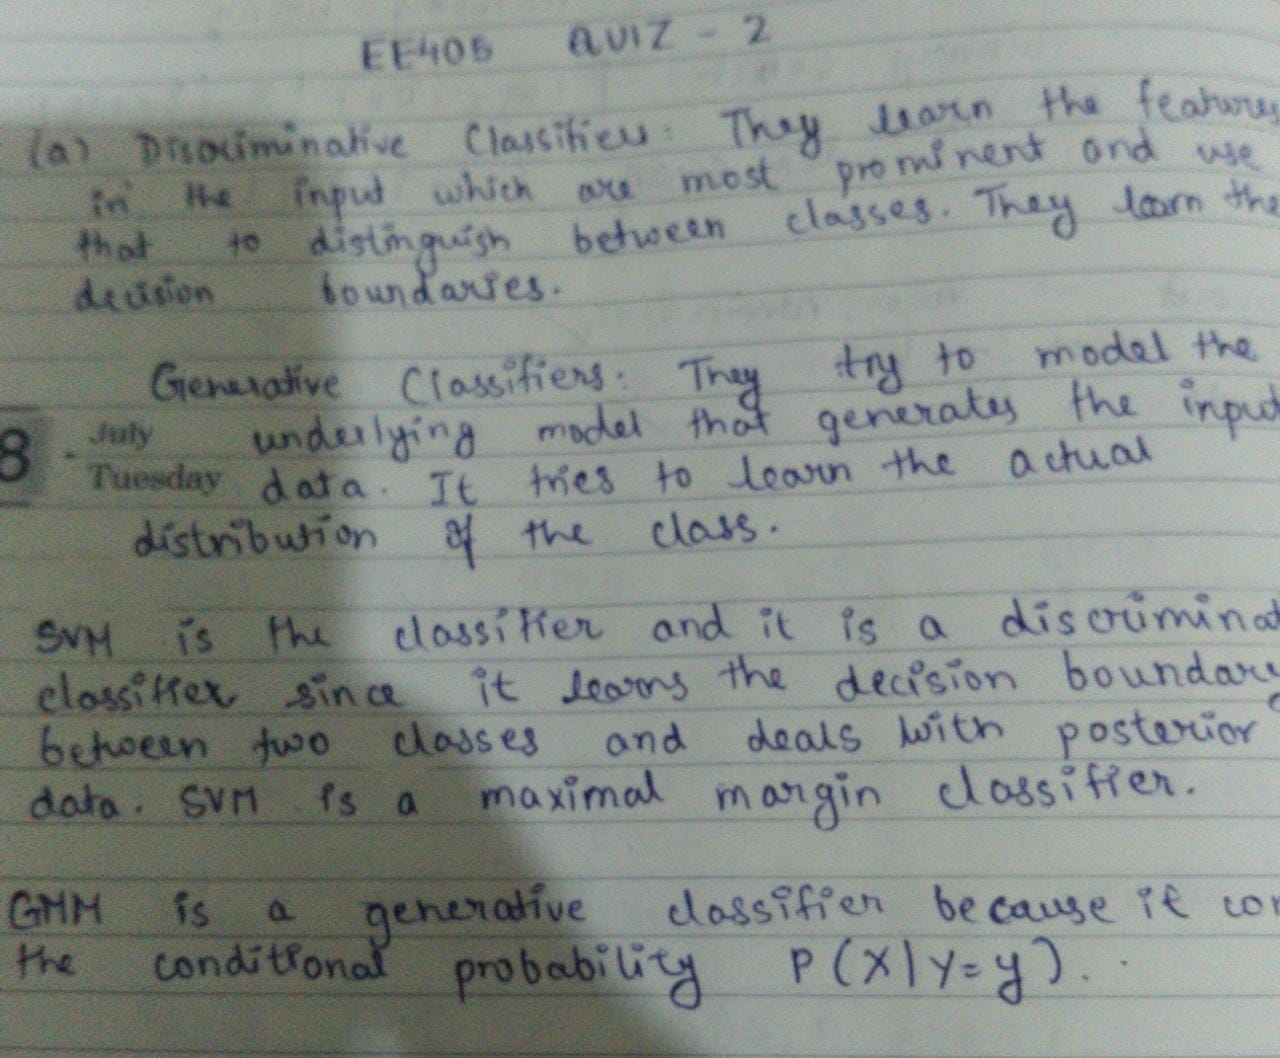 EE405 QUIZ - 2
(a) Discriminative Classifiers: They learn the features
in the input which are most prominent and use
that to distinguish between classes. They learn the
decision boundaries.
Generative Classifiers: They try to model the
8 July underlying model that generates the input
Tuesday data. It tries to learn the actual
distribution of the class.
SVM is the classifier and it is a discriminat
classifier since it learns the decision boundary
between two classes and deals with posterior
data. SVM is a maximal margin classifier.
GMM is a generative classifier because it
the conditional probability P(X|Y=y).